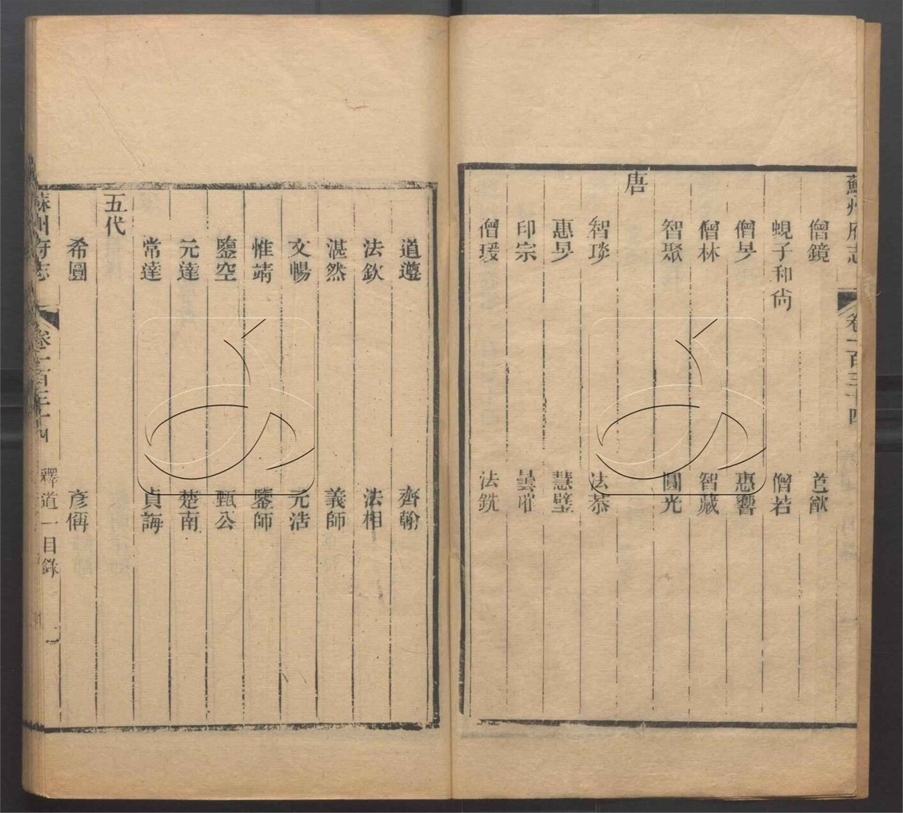 蘇州府志
卷一百三十四
僧鏡 道猷
蜆子和尙 僧若
僧旻 惠響
僧林 智藏
智聚 圓光
唐
智琰 法恭
惠旻 慧璧
印宗 曇璀
僧瑗 法銑
道遵 齊翰
法欽 法相
湛然 義師
文暢 元浩
惟靖 鑒師
鑒空 甄公
元達 楚南
常達 貞誨
五代
希圓 彥偁
蘇州府志
卷一百三十四
釋道一目錄